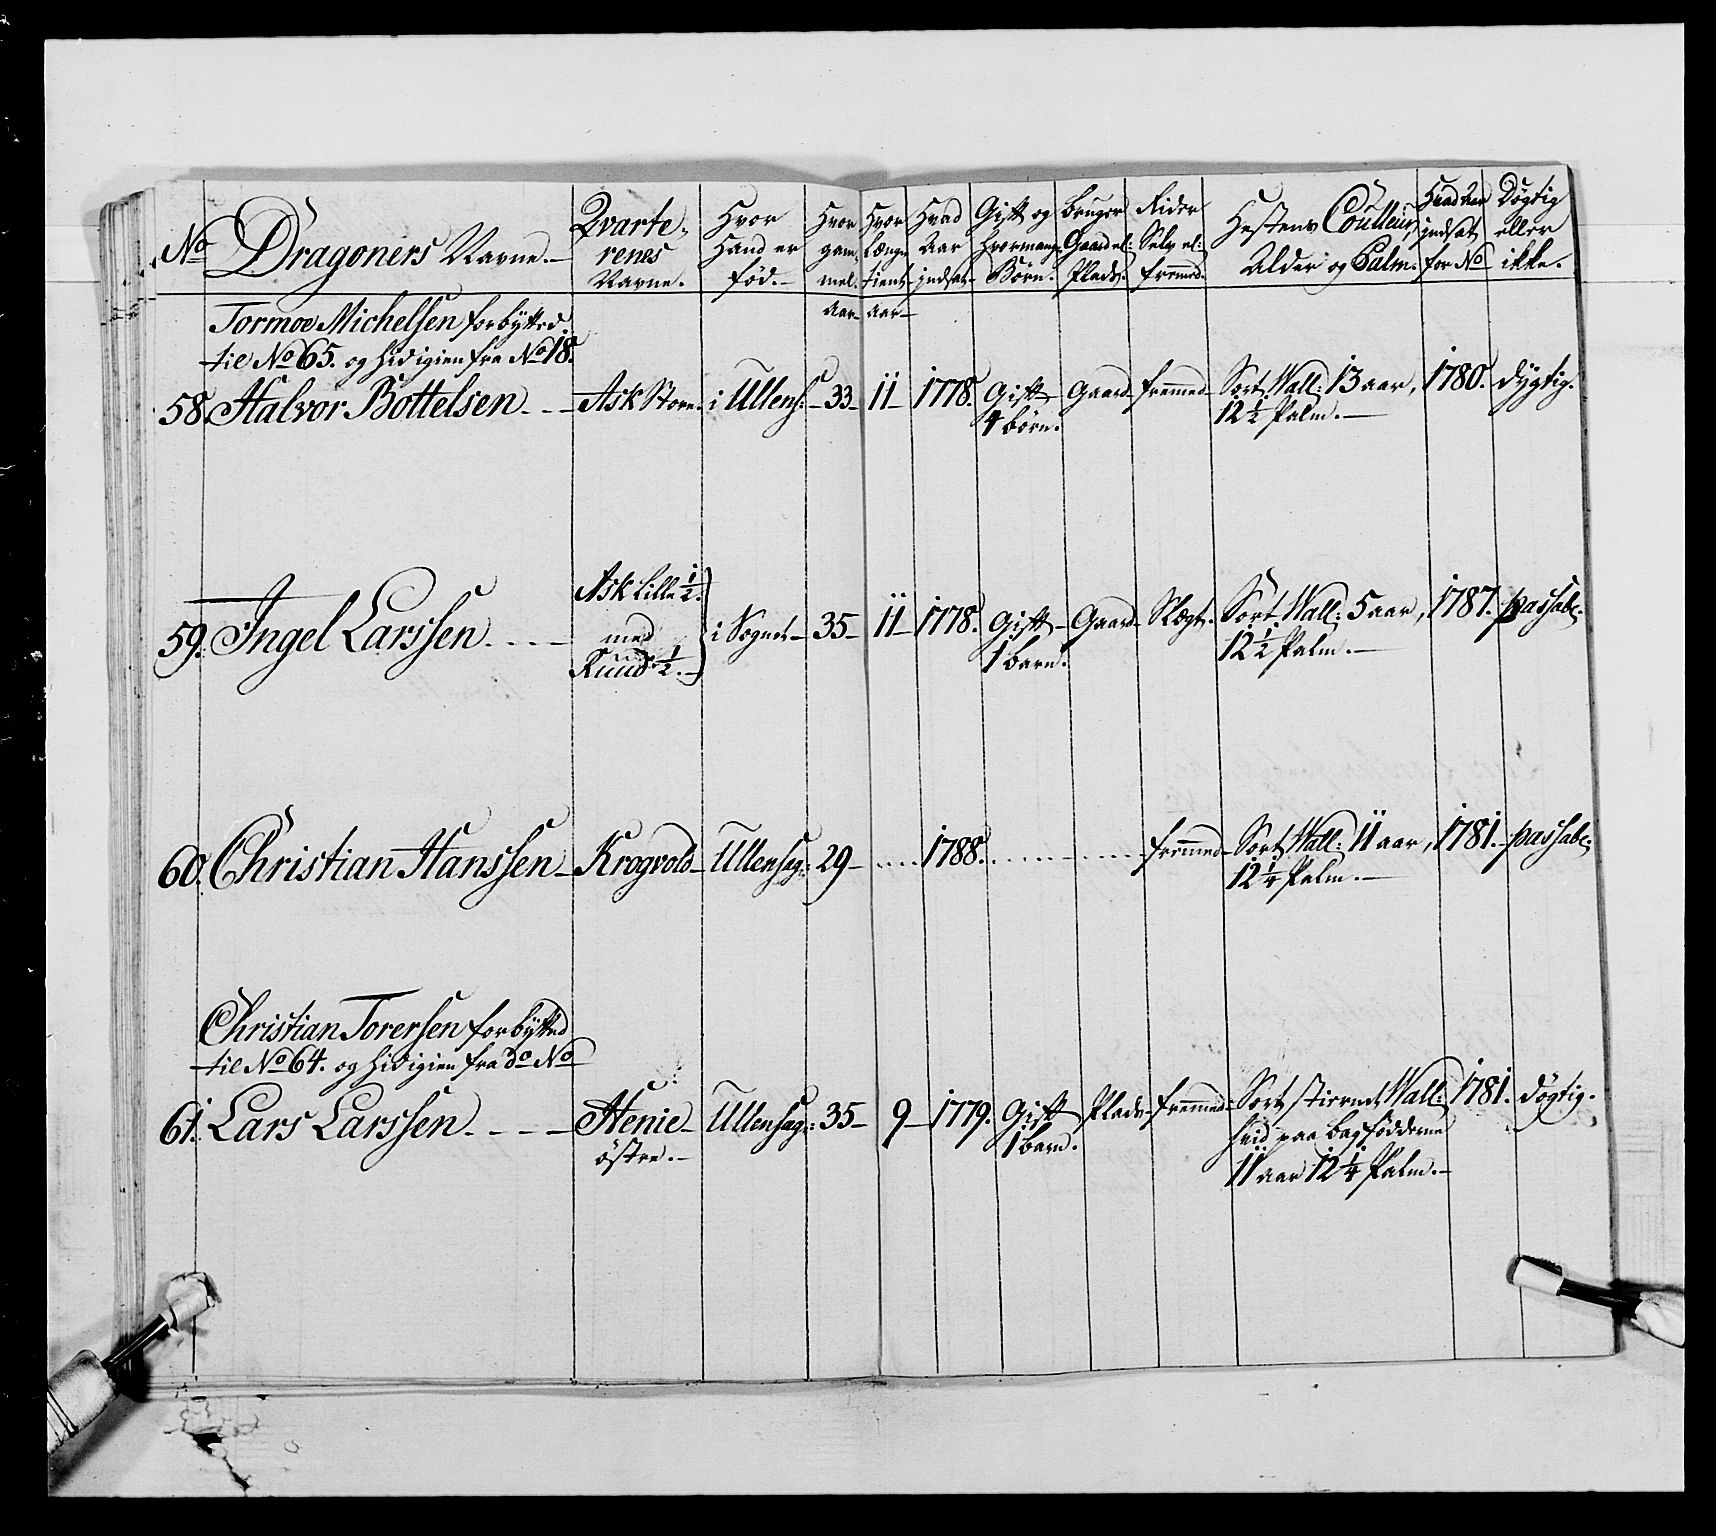 No Dragoners Navne.
Qvarterenes Navne.
Hvor Hand er fød.
Hvor gammel. Aar
Hvor Længe tient aar
Hvad Aar indsat
Gift og Hvormange Børn.
Bruger Gaard el: Plads.
Rider Selv el: fremmed.
Hestens Coulleur, Alder og Palm.
Hvad Aar indsat for No
Døgtig eller ikke.
Tormoe Michelsen forbÿtted
til No 65. og hidigien fra No 18.
58. Halvor Bottelsen. - - Ask Store. i Ullens: 33 11 1778. Gift Gaard fremmed Sort Wall: 13 aar, 1780. dygtig.
4 børn. 12 1/2 Palm.
Ask Lille 1/2.
59. Ingel Larssen. - - - med i Sognet 35 11 1778. Gift Gaard Slægt. Sort Wall: 5 aar, 1787. passabe:
Ruud 1/2. 1 barn. 12 1/2 Palm.
60. Christian Hanssen Krogvold Ullensag: 29 .... 1788. ........ fremmed Sort Wall: 11 aar, 1781. passabe:
12 1/4 Palm.
Christian Torersen forbÿtted
til No 64. og hidigien fra do No
61. Lars Larssen. - - - Henie Ullensag: 35 9 1779. Gift Plads fremmed Sort stiernet Wall: 1781. døgtig.
östre. 1 barn. hvid paa bagfødderne
11 aar 12 1/4 Palm.